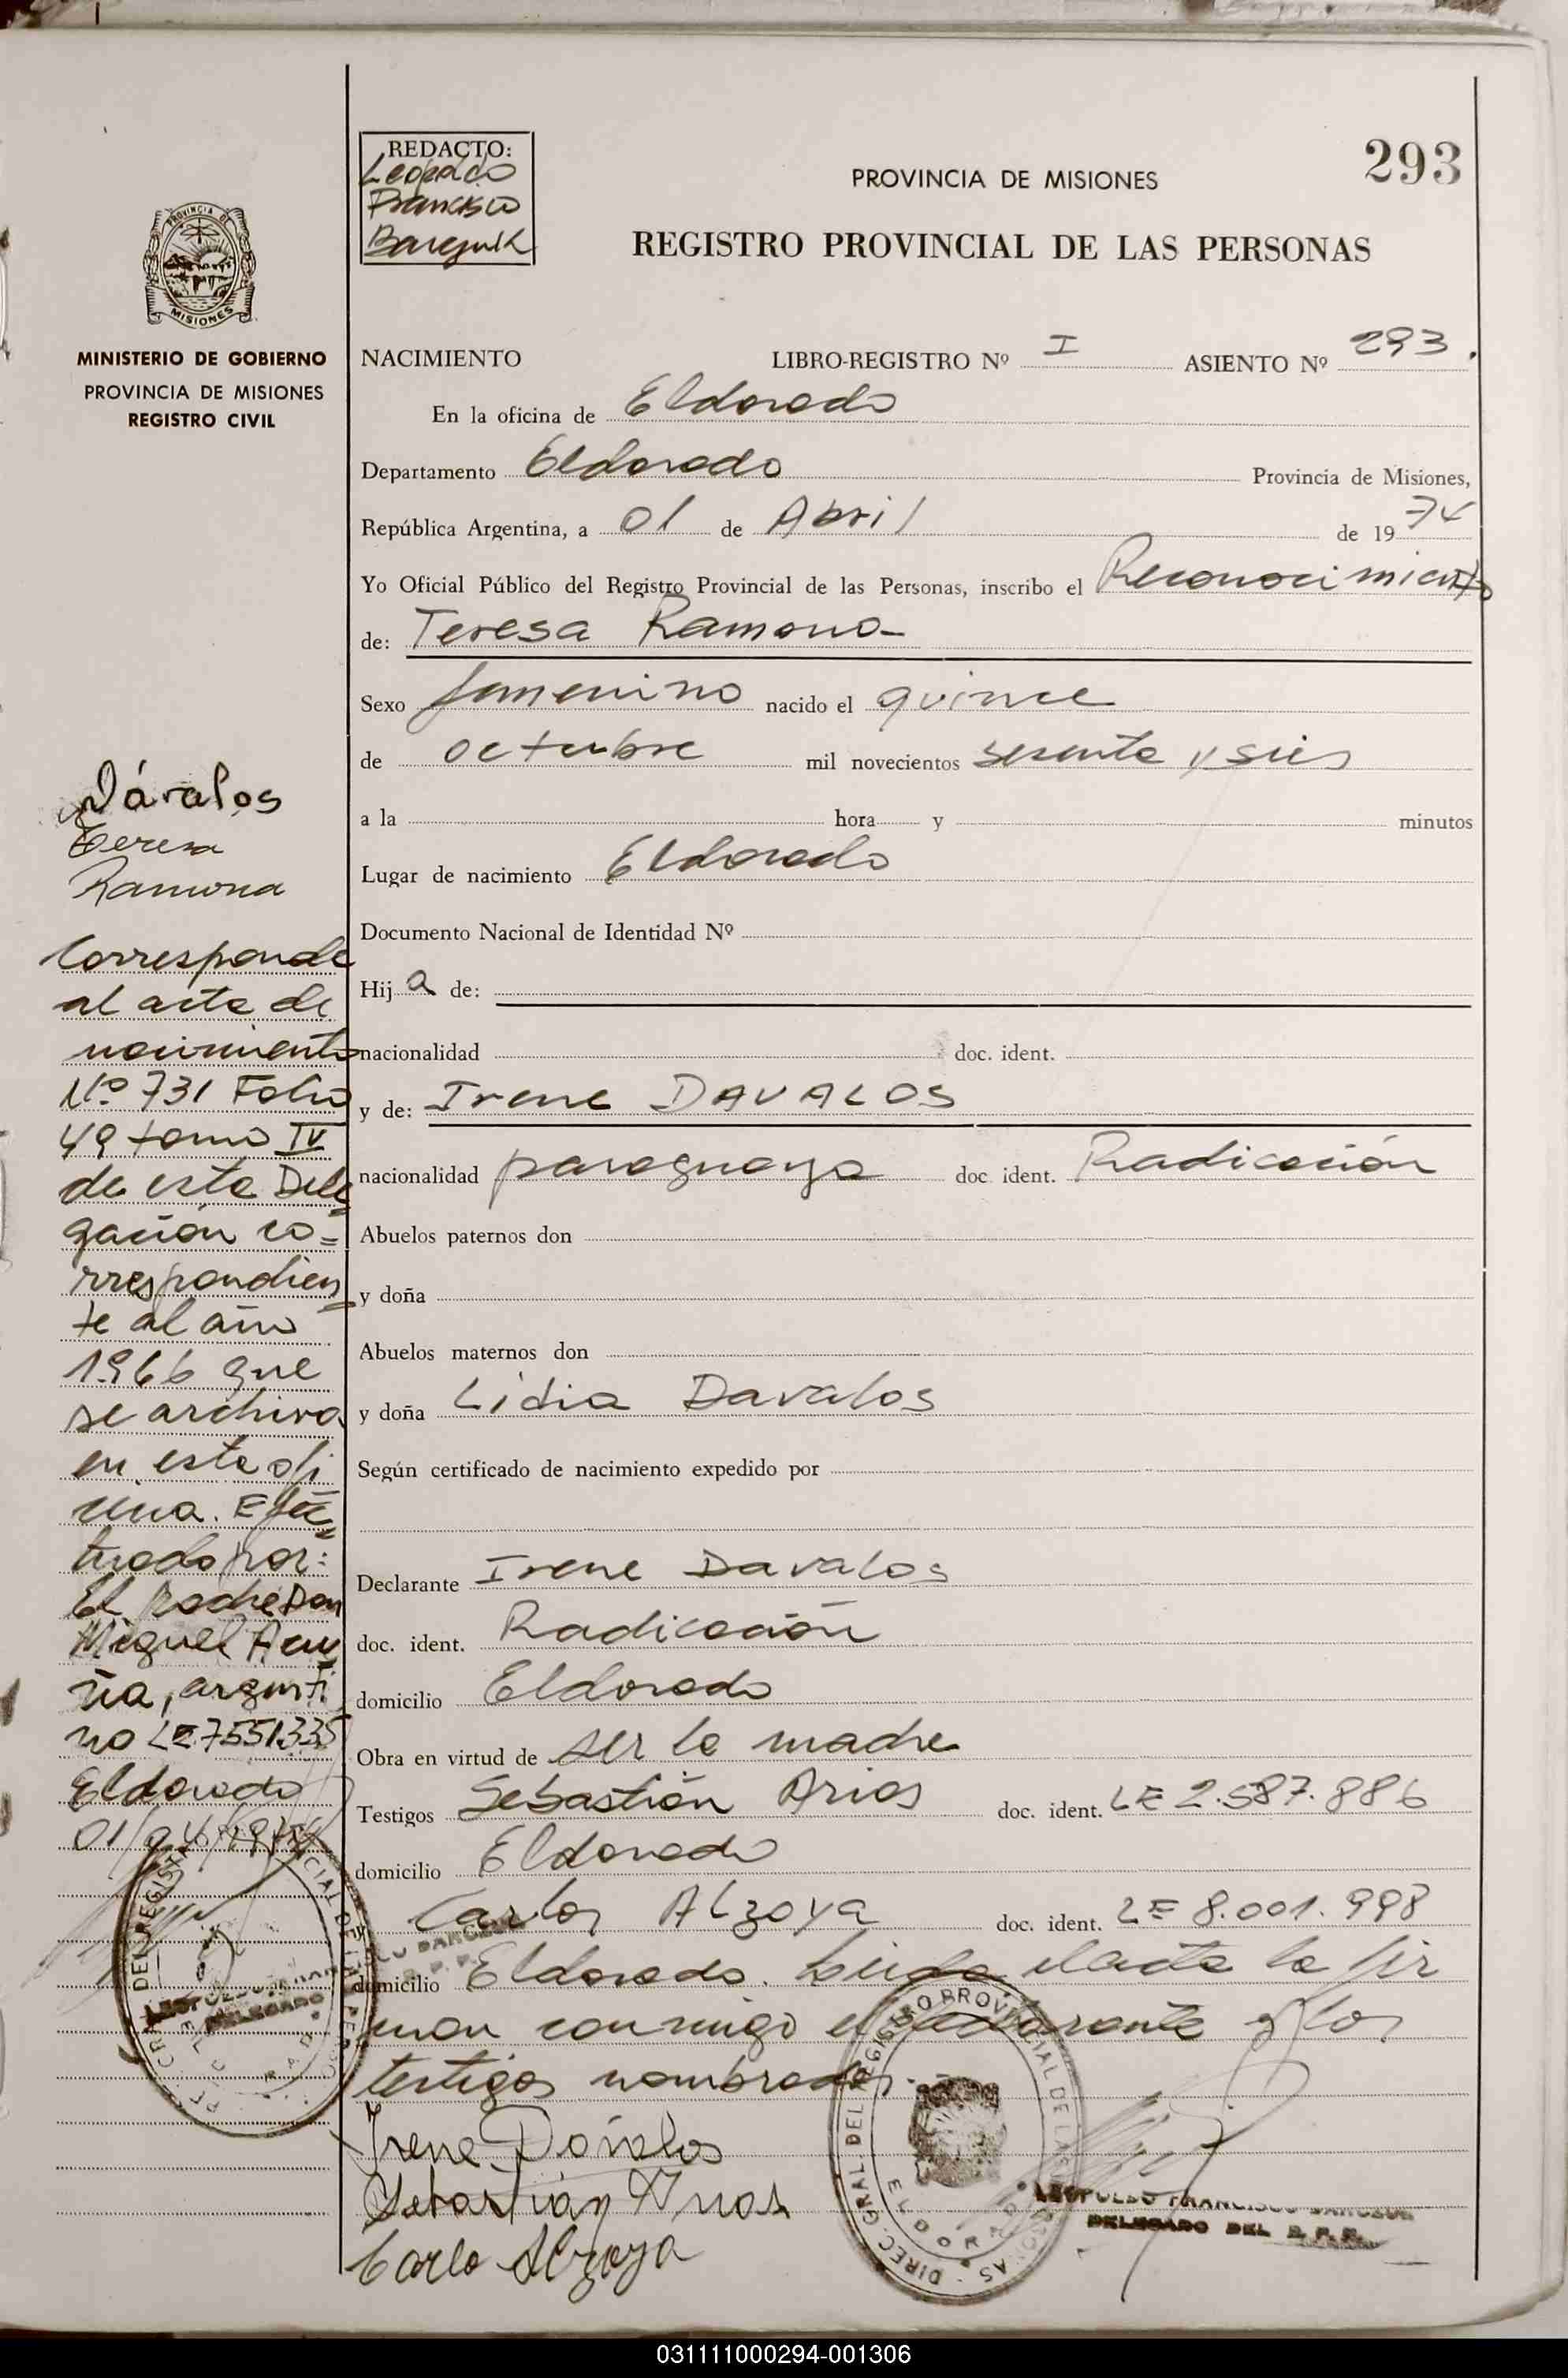 REDACTO:
Leopoldo
Francisco
293
PROVINCIA DE MISIONES
REGISTRO PROVINCIAL DE LAS PERSONAS
PROVINCIA DE
MISIONES
MINISTERIO DE GOBIERNO
PROVINCIA DE MISIONES
REGISTRO CIVIL
NACIMIENTO LIBRO-REGISTRO Nº I ASIENTO Nº 293.
En la oficina de Eldorado
Departamento Eldorado Provincia de Misiones,
República Argentina, a 01 de Abril de 1974
Yo Oficial Público del Registro Provincial de las Personas, inscribo el Reconocimiento
de: Teresa Ramona-
Sexo femenino nacido el quince
de octubre mil novecientos sesenta y seis
a la hora y minutos
Lugar de nacimiento Eldorado
Documento Nacional de Identidad Nº
Hija de:
nacionalidad doc. ident.
y de: Irene DAVALOS
nacionalidad paraguaya doc. ident. Radicación
Abuelos paternos don
y doña
Abuelos maternos don
y doña Lidia Davalos
Según certificado de nacimiento expedido por
Declarante Irene Davalos
doc. ident. Radicación
domicilio Eldorado
Obra en virtud de ser la madre
Testigos Sebastián Arias doc. ident. LE 2.587.886
domicilio Eldorado
Carlos Alzoya doc. ident. LE 8.001.998
domicilio Eldorado. Leida el acta la fir
man conmigo el declarante y los
testigos nombrados.
Irene Dávalos
Sebastián Arias
Carlo Alzoya
Dávalos
Teresa
Ramona
Corresponde
al acta de
nacimiento
Nº 731 Folio
49 tomo IV
de esta Dele
gación co=
rrespondien
te al año
1966 que
se archiva
en esta ofi
cina. Efec
tuado por:
El padre Don
Miguel Acu
ña, argenti
no LE 7551335
Eldorado
01/04/1974
DELEGADO
DIREC. GRAL. DEL REGISTRO PROVINCIAL DE LAS PERSONAS
ELDORADO
LEOPOLDO FRANCISCO
DELEGADO DEL R. P. P.
031111000294-001306